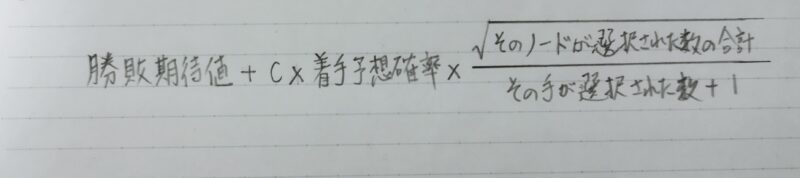 勝敗期待値 + C × 着手予想確率 × √そのノードが選択された数の合計
その手が選択された数 + 1